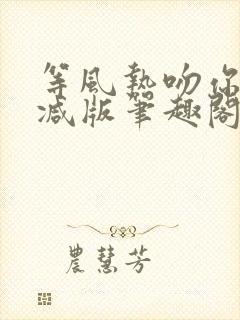 等風熱吻你
減版筆趣閣
農慧芳